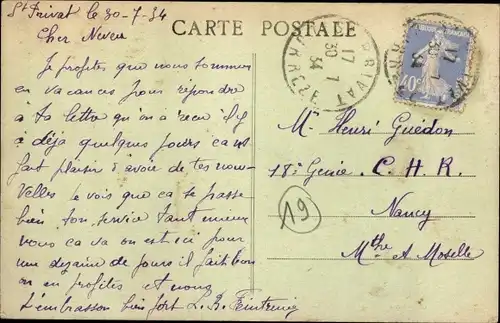 St Privat le 30-7-34
CARTE POSTALE
Cher Neveu
Je profites que nous sommes
en vacances pour répondre
à ta lettre qu'on a recu il y
à déja quelques jours ca nous
fait plaisir d'avoir de tes nou-
velles Je vois que ca se passe
bien ton service tant mieux
nous ca va on est ici pour
une dizaine de jours il fait bon
on en profites et nous
t'embrassons bien fort L. R.
PRIVAT
CORREZE
17
30 7
34
40c
Mr Henri Guédon
18e Génie C. H. R.
Nancy
Mthe A Moselle
19